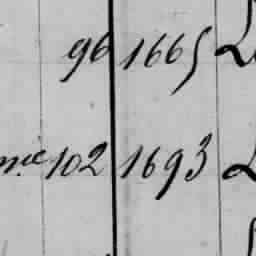 96 1665
102 1693